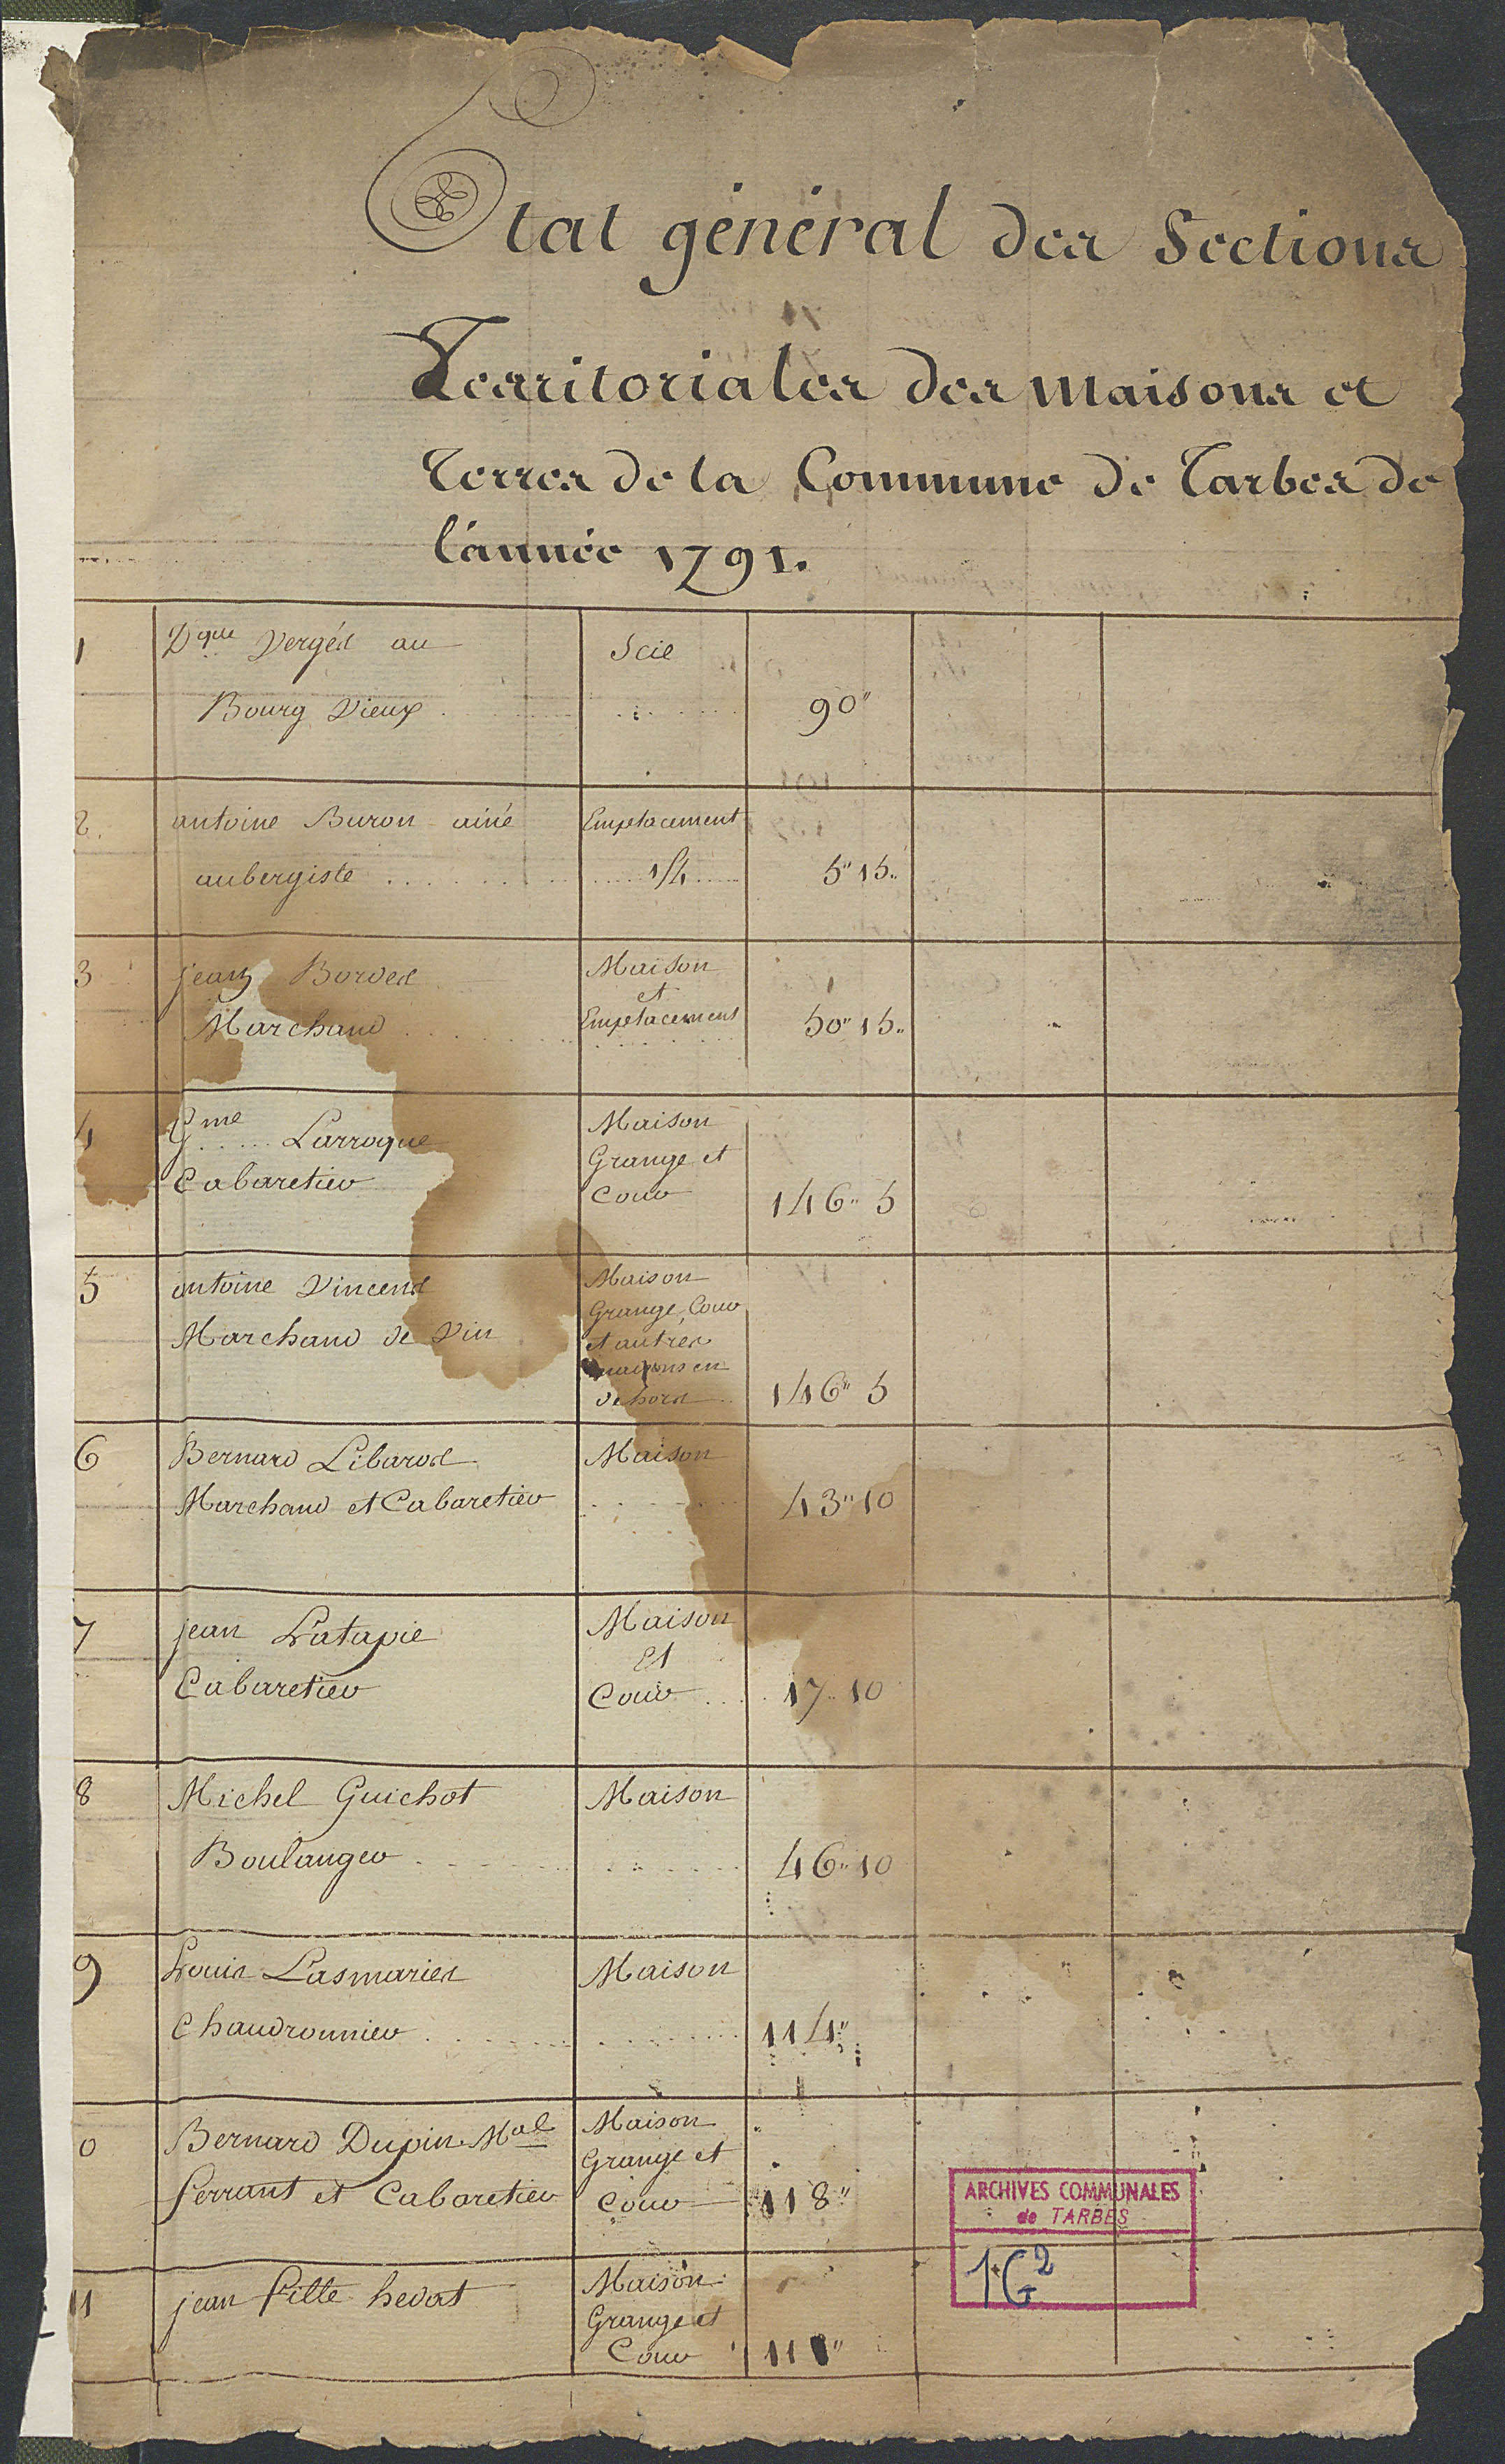 Etat général des Sections
Territoriales des Maisons et
Terres de la Commune de Tarbes de
l'année 1791.
1 Dque Vergés au Scie
Bourg Vieux 90"
2. antoine Buron ainé Emplacement
aubergiste 1/4 5"15"
3 jean Bordes Maison
et
Marchand Emplacement 50"15"
4 Gme Larroque Maison
Grange et
Cabaretier Cour 146"5
5 antoine Vincens Maison
Grange, Cour
Marchand de Vin et autres
maisons en
dehors 146"5
6 Bernard Libaros Maison
Marchand et Cabaretier 43"10
7 jean Latapie Maison
Et
Cabaretier Cour 17"10
8 Michel Guichot Maison
Boulanger 46"10
9 Louis Lasmaries Maison
Chaudronnier 114"
0 Bernard Dupin Mal Maison
Grange et
ferrant et Cabaretier Cour 118"
11 jean fitte hedat Maison
Grange et
Cour
ARCHIVES COMMUNALES
de TARBES
1G2